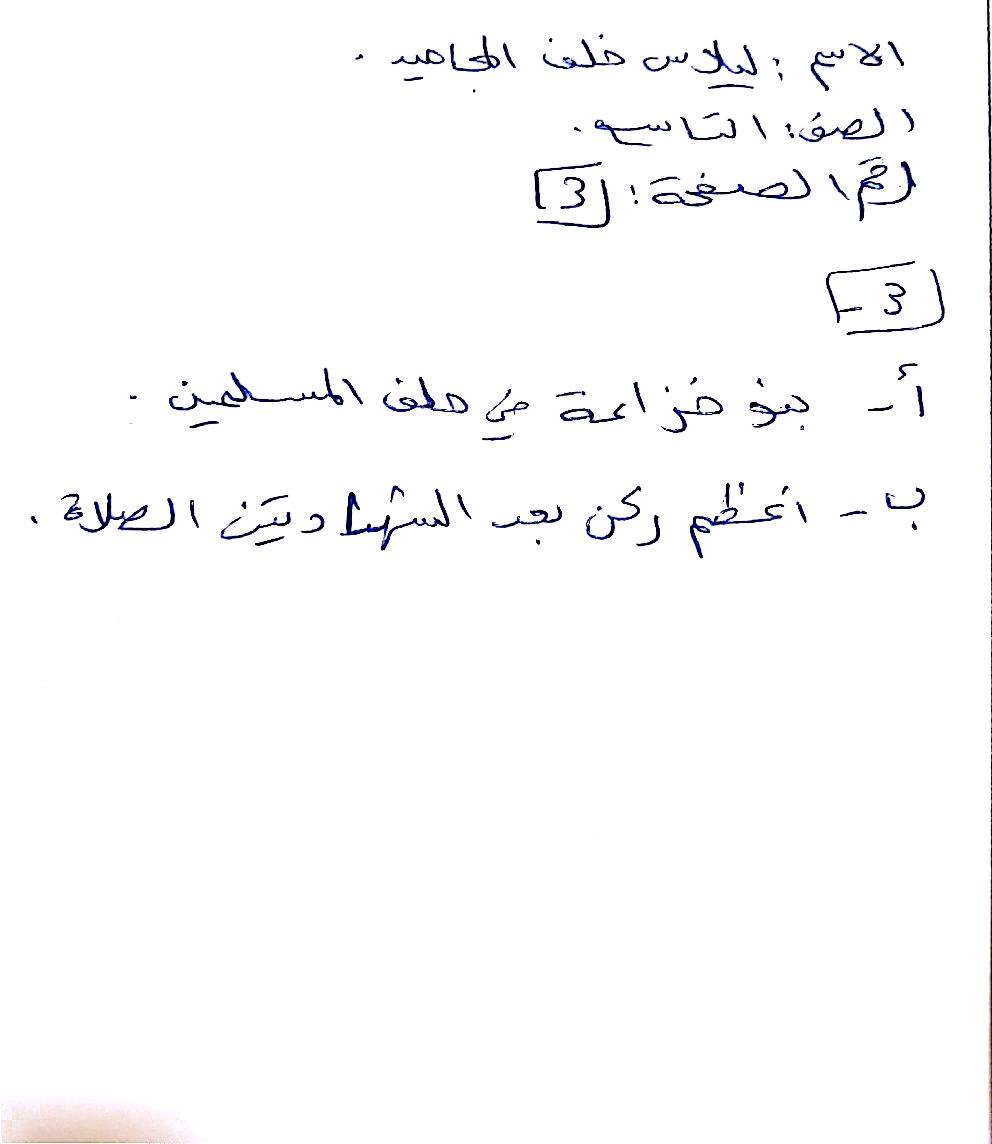 الاسم : ليلاس خلف المحاميد .
الصف: التاسع.
رقم الصفحة: 3
3 -
أ - بنو خزاعة في حلف المسلمين .
ب - أعظم ركن بعد الشهادتين الصلاة .